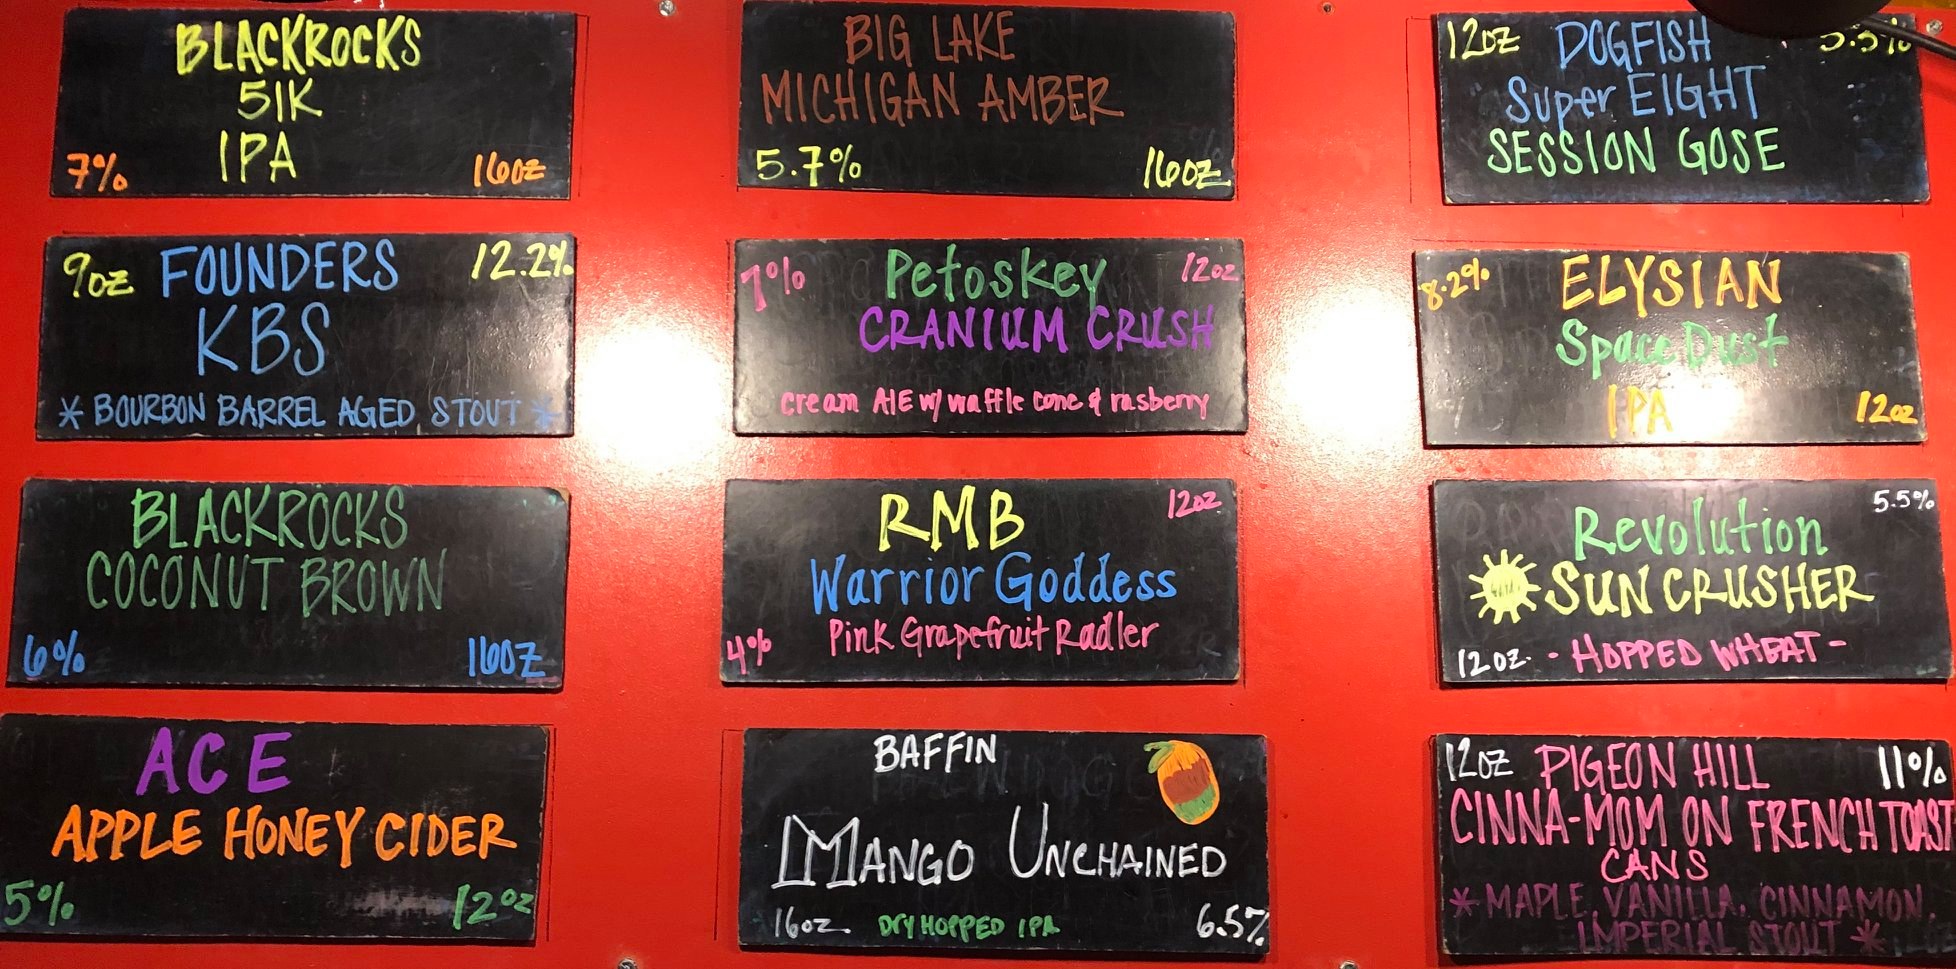 BLACKROCKS
51K
IPA
7% 16oz
BIG LAKE
MICHIGAN AMBER
5.7% 16oz
12oz DOGFISH 5.3%
Super EIGHT
SESSION GOSE
9oz FOUNDERS 12.2%
KBS
* BOURBON BARREL AGED STOUT *
7% Petoskey 12oz
CRANIUM CRUSH
cream AlE w/ waffle cone & rasberry
8.2% ELYSIAN
Space Dust
IPA 12oz
BLACKROCKS
COCONUT BROWN
6% 16OZ
RMB 12oz
Warrior Goddess
Pink Grapefruit Radler
4%
5.5%
Revolution
SUN CRUSHER
12oz. - HOPPED WHEAT -
ACE
APPLE HONEY CIDER
5% 12oz
BAFFIN
MANGO UNCHAINED
16oz. DRY HOPPED IPA 6.5%
12oz PIGEON HILL 11%
CINNA-MOM ON FRENCH TOAST
CANS
* MAPLE, VANILLA, CINNAMON,
IMPERIAL STOUT *